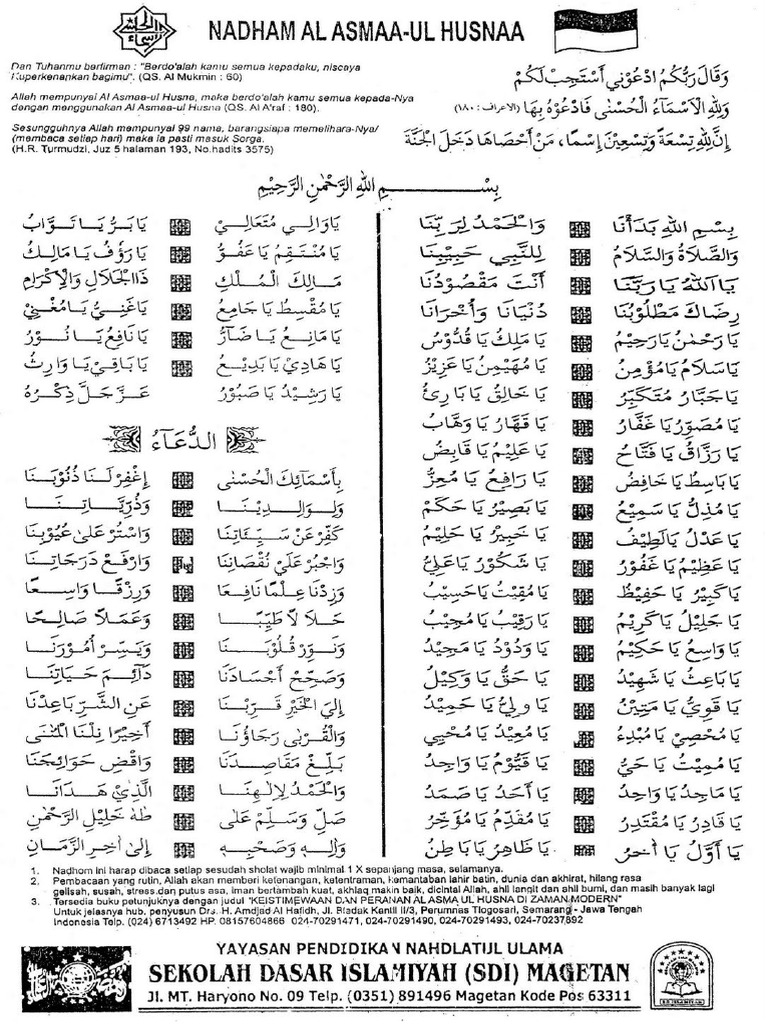 NADHAM AL ASMAA-UL HUSNAA
Dan Tuhanmu berfirman : "Berdo'alah kamu semua kepadaku, niscaya
Kuperkenankan bagimu". (QS. Al Mukmin : 60)
Allah mempunyai Al Asmaa-ul Husna, maka berdo'alah kamu semua kepada-Nya
dengan menggunakan Al Asmaa-ul Husna (QS. Al A'raf : 180).
Sesungguhnya Allah mempunyai 99 nama, barangsiapa memelihara-Nya/
(membaca setiap hari) maka ia pasti masuk Sorga.
(H.R. Turmudzi, Juz 5 halaman 193, No.hadits 3575)
وَقَالَ رَبُّكُمُ ادْعُوْنِي أَسْتَجِبْ لَكُمْ
وَلِلهِ الْاَسْمَاءُ الْحُسْنٰى فَادْعُوْهُ بِهَا (الاعراف : ١٨٠)
إِنَّ لِلهِ تِسْعَةً وَتِسْعِيْنَ إِسْمًا، مَنْ أَحْصَاهَا دَخَلَ الْجَنَّةَ
بِسْمِ اللهِ الرَّحْمٰنِ الرَّحِيْمِ
بِسْمِ اللهِ بَدَأْنَا وَالْحَمْدُ لِرَبِّنَا
وَالصَّلَاةُ وَالسَّلَامُ لِلنَّبِي حَبِيْبِنَا
يَا اَللهُ يَا رَبَّنَا أَنْتَ مَقْصُوْدُنَا
رِضَاكَ مَطْلُوْبُنَا دُنْيَانَا وَأُخْرَانَا
يَا رَحْمٰنُ يَا رَحِيْمُ يَا مَلِكُ يَا قُدُّوْسُ
يَا سَلَامُ يَا مُؤْمِنُ يَا مُهَيْمِنُ يَا عَزِيْزُ
يَا جَبَّارُ مُتَكَبِّرُ يَا خَالِقُ يَا بَارِئُ
يَا مُصَوِّرُ يَا غَفَّارُ يَا قَهَّارُ يَا وَهَّابُ
يَا رَزَّاقُ يَا فَتَّاحُ يَا عَلِيْمُ يَا قَابِضُ
يَا بَاسِطُ يَا خَافِضُ يَا رَافِعُ يَا مُعِزُّ
يَا مُذِلُّ يَا سَمِيْعُ يَا بَصِيْرُ يَا حَكَمْ
يَا عَدْلُ يَا لَطِيْفُ يَا خَبِيْرُ يَا حَلِيْمُ
يَا عَظِيْمُ يَا غَفُوْرُ يَا شَكُوْرُ يَا عَلِيُّ
يَا كَبِيْرُ يَا حَفِيْظُ يَا مُقِيْتُ يَا حَسِيْبُ
يَا جَلِيْلُ يَا كَرِيْمُ يَا رَقِيْبُ يَا مُجِيْبُ
يَا وَاسِعُ يَا حَكِيْمُ يَا وَدُوْدُ يَا مَجِيْدُ
يَا بَاعِثُ يَا شَهِيْدُ يَا حَقُّ يَا وَكِيْلُ
يَا قَوِيُّ يَا مَتِيْنُ يَا وَلِيُّ يَا حَمِيْدُ
يَا مُحْصِيْ يَا مُبْدِءُ يَا مُعِيْدُ يَا مُحْيِي
يَا مُمِيْتُ يَا حَيُّ يَا قَيُّوْمُ يَا وَاجِدُ
يَا مَاجِدُ يَا وَاحِدُ يَا أَحَدُ يَا صَمَدُ
يَا قَادِرُ يَا مُقْتَدِرُ يَا مُقَدِّمُ يَا مُؤَخِّرُ
يَا أَوَّلُ يَا آخِرُ يَا ظَاهِرُ يَا بَاطِنُ
يَا وَالِي مُتَعَالِيْ يَا بَرُّ يَا تَوَّابُ
يَا مُنْتَقِمُ يَا عَفُوُّ يَا رَؤُفُ يَا مَالِكُ
مَالِكَ الْمُلْكِ ذَاالْجَلَالِ وَالْإِكْرَامِ
يَا مُقْسِطُ يَا جَامِعُ يَا غَنِيُّ يَا مُغْنِيْ
يَا مَانِعُ يَا ضَآرُّ يَا نَافِعُ يَا نُوْرُ
يَا هَادِيْ يَا بَدِيْعُ يَا بَاقِيْ يَا وَارِثُ
يَا رَشِيْدُ يَا صَبُوْرُ عَزَّ جَلَّ ذِكْرُهُ
الدُّعَآءُ
بِأَسْمَائِكَ الْحُسْنٰى إِغْفِرْ لَنَا ذُنُوْبَنَا
وَلِوَالِدِيْنَا وَذُرِّيَّاتِنَا
كَفِّرْ عَنْ سَيِّئَاتِنَا وَاسْتُرْ عَلٰى عُيُوْبِنَا
وَاجْبُرْ عَلٰى نُقْصَانِنَا وَارْفَعْ دَرَجَاتِنَا
وَزِدْنَا عِلْمًا نَافِعًا وَرِزْقًا وَاسِعًا
حَلَالًا طَيِّبًا وَعَمَلًا صَالِحًا
وَنَوِّرْ قُلُوْبَنَا وَيَسِّرْ أُمُوْرَنَا
وَصَحِّحْ أَجْسَادَنَا دَائِمَ حَيَاتِنَا
إِلَى الْخَيْرِ قَرِّبْنَا عَنِ الشَّرِّ بَاعِدْنَا
وَالْقُرْبٰى رَجَاؤُنَا أَخِيْرًا نِلْنَا الْمُنٰى
بَلِّغْ مَقَاصِدَنَا وَاقْضِ حَوَائِجَنَا
وَالْحَمْدُ لِإِلٰهِنَا الَّذِيْ هَدَانَا
صَلِّ وَسَلِّمْ عَلٰى طٰهٰ خَلِيْلِ الرَّحْمٰنِ
وَآلِهِ وَصَحْبِهِ إِلٰى آخِرِ الزَّمَانِ
1. Nadhom ini harap dibaca setiap sesudah sholat wajib minimal 1 X sepanjang masa, selamanya.
2. Pembacaan yang rutin, Allah akan memberi ketenangan, ketentraman, kemantaban lahir batin, dunia dan akhirat, hilang rasa
gelisah, susah, stress dan putus asa, iman bertambah kuat, akhlaq makin baik, dicintai Allah, ahli langit dan ahli bumi, dan masih banyak lagi
3. Tersedia buku petunjuknya dengan judul "KEISTIMEWAAN DAN PERANAN AL ASMA UL HUSNA DI ZAMAN MODERN"
Untuk jelasnya hub. penyusun Drs. H. Amdjad Al Hafidh, Jl. Bladak Kenlil II/3, Perumnas Tlogosari, Semarang - Jawa Tengah
Indonesia Telp. (024) 6713492 HP. 08157604866 024-70291471, 024-70291490, 024-70291493, 024-70237892
YAYASAN PENDIDIKAN NAHDLATUL ULAMA
SEKOLAH DASAR ISLAMIYAH (SDI) MAGETAN
Jl. MT. Haryono No. 09 Telp. (0351) 891496 Magetan Kode Pos 63311